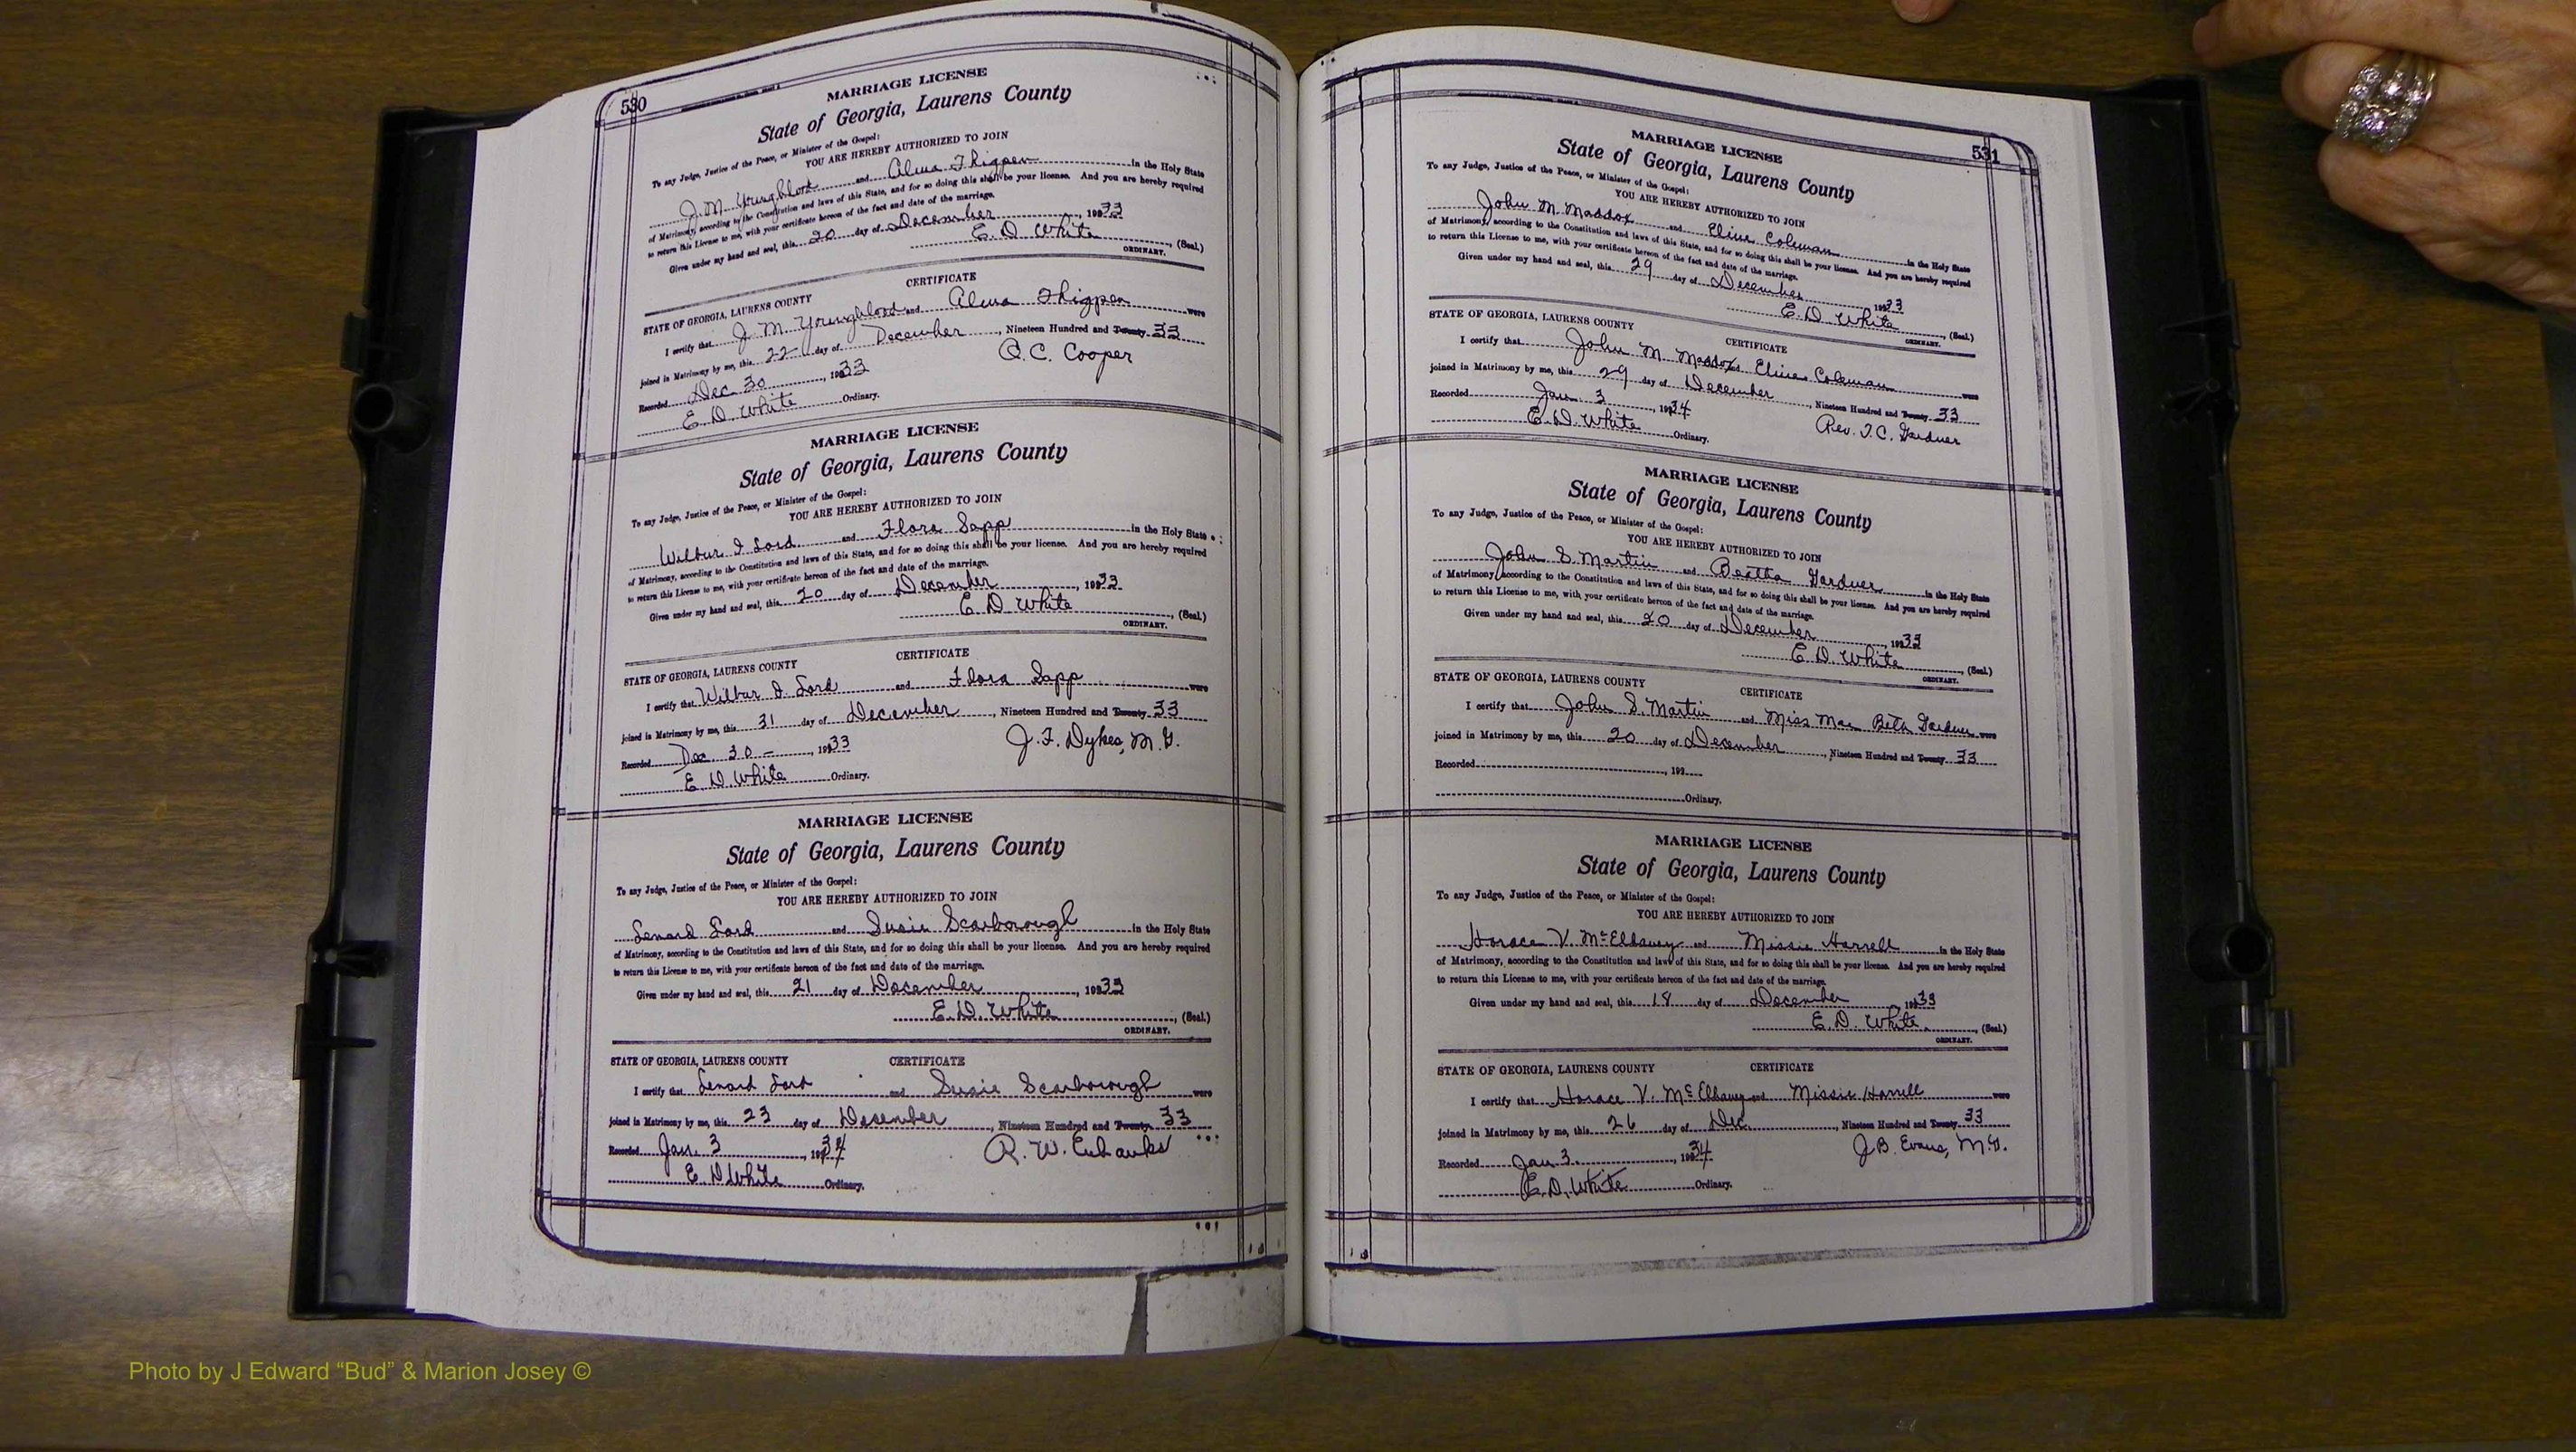 530
MARRIAGE LICENSE
State of Georgia, Laurens County
To any Judge, Justice of the Peace, or Minister of the Gospel:
YOU ARE HEREBY AUTHORIZED TO JOIN
J. M. Youngblood and Alma Thigpen in the Holy State
of Matrimony, according to the Constitution and laws of this State, and for so doing this shall be your license. And you are hereby required
to return this License to me, with your certificate hereon of the fact and date of the marriage.
Given under my hand and seal, this 20 day of December, 1933
E. D. White, (Seal.)
ORDINARY.
CERTIFICATE
STATE OF GEORGIA, LAURENS COUNTY
I certify that J. M. Youngblood and Alma Thigpen were
joined in Matrimony by me, this 22 day of December, Nineteen Hundred and Twenty 33
Recorded Dec 30, 1933 Q. C. Cooper
E. D. White Ordinary.
MARRIAGE LICENSE
State of Georgia, Laurens County
To any Judge, Justice of the Peace, or Minister of the Gospel:
YOU ARE HEREBY AUTHORIZED TO JOIN
Wilbur I Lord and Flora Sapp in the Holy State
of Matrimony, according to the Constitution and laws of this State, and for so doing this shall be your license. And you are hereby required
to return this License to me, with your certificate hereon of the fact and date of the marriage.
Given under my hand and seal, this 20 day of December, 1933
E. D. White, (Seal.)
ORDINARY.
CERTIFICATE
STATE OF GEORGIA, LAURENS COUNTY
I certify that Wilbur I. Lord and Flora Sapp were
joined in Matrimony by me, this 31 day of December, Nineteen Hundred and Twenty 33
Recorded Dec 30 -, 1933 J. F. Dykes, M. G.
E. D. White Ordinary.
MARRIAGE LICENSE
State of Georgia, Laurens County
To any Judge, Justice of the Peace, or Minister of the Gospel:
YOU ARE HEREBY AUTHORIZED TO JOIN
Lenard Lord and Susie Scarborough in the Holy State
of Matrimony, according to the Constitution and laws of this State, and for so doing this shall be your license. And you are hereby required
to return this License to me, with your certificate hereon of the fact and date of the marriage.
Given under my hand and seal, this 21 day of December, 1933
E. D. White, (Seal.)
ORDINARY.
STATE OF GEORGIA, LAURENS COUNTY CERTIFICATE
I certify that Lenard Lord and Susie Scarborough were
joined in Matrimony by me, this 23 day of December, Nineteen Hundred and Twenty 33
Recorded Jan. 3, 1934 R. W. Eubanks
E. D. White Ordinary.
531
MARRIAGE LICENSE
State of Georgia, Laurens County
To any Judge, Justice of the Peace, or Minister of the Gospel:
YOU ARE HEREBY AUTHORIZED TO JOIN
John M. Maddox and Eline Coleman in the Holy State
of Matrimony, according to the Constitution and laws of this State, and for so doing this shall be your license. And you are hereby required
to return this License to me, with your certificate hereon of the fact and date of the marriage.
Given under my hand and seal, this 29 day of December, 1933
E. D. White, (Seal.)
ORDINARY.
STATE OF GEORGIA, LAURENS COUNTY
CERTIFICATE
I certify that John M. Maddox Eline Coleman were
joined in Matrimony by me, this 29 day of December, Nineteen Hundred and Twenty 33
Recorded Jan. 3, 1934 Rev. T. C. Gardner
E. D. White Ordinary.
MARRIAGE LICENSE
State of Georgia, Laurens County
To any Judge, Justice of the Peace, or Minister of the Gospel:
YOU ARE HEREBY AUTHORIZED TO JOIN
John S. Martin and Beatha Gardner in the Holy State
of Matrimony, according to the Constitution and laws of this State, and for so doing this shall be your license. And you are hereby required
to return this License to me, with your certificate hereon of the fact and date of the marriage.
Given under my hand and seal, this 20 day of December, 1933
E. D. White, (Seal.)
ORDINARY.
STATE OF GEORGIA, LAURENS COUNTY CERTIFICATE
I certify that John S. Martin and Miss Mae Beth Gardner were
joined in Matrimony by me, this 20 day of December, Nineteen Hundred and Twenty 33
Recorded, 192
Ordinary.
MARRIAGE LICENSE
State of Georgia, Laurens County
To any Judge, Justice of the Peace, or Minister of the Gospel:
YOU ARE HEREBY AUTHORIZED TO JOIN
Horace V. McElhaney and Missie Harrell in the Holy State
of Matrimony, according to the Constitution and laws of this State, and for so doing this shall be your license. And you are hereby required
to return this License to me, with your certificate hereon of the fact and date of the marriage.
Given under my hand and seal, this 18 day of December 1933
E. D. White, (Seal.)
ORDINARY.
STATE OF GEORGIA, LAURENS COUNTY CERTIFICATE
I certify that Horace V. McElhaney and Missie Harrell were
joined in Matrimony by me, this 26 day of Dec, Nineteen Hundred and Twenty 33
Recorded Jan 3., 1934 J. B. Evans, M. G.
E. D. White Ordinary.
Photo by J Edward “Bud” & Marion Josey ©